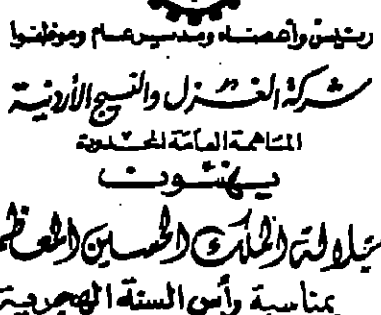 رئيس وأعضاء ومدير عام وموظفوا
شركة الغزل والنسيج الأردنية
المساهمة العامة المحدودة
يهنئون
جلالة الملك الحسين المعظم
بمناسبة رأس السنة الهجرية